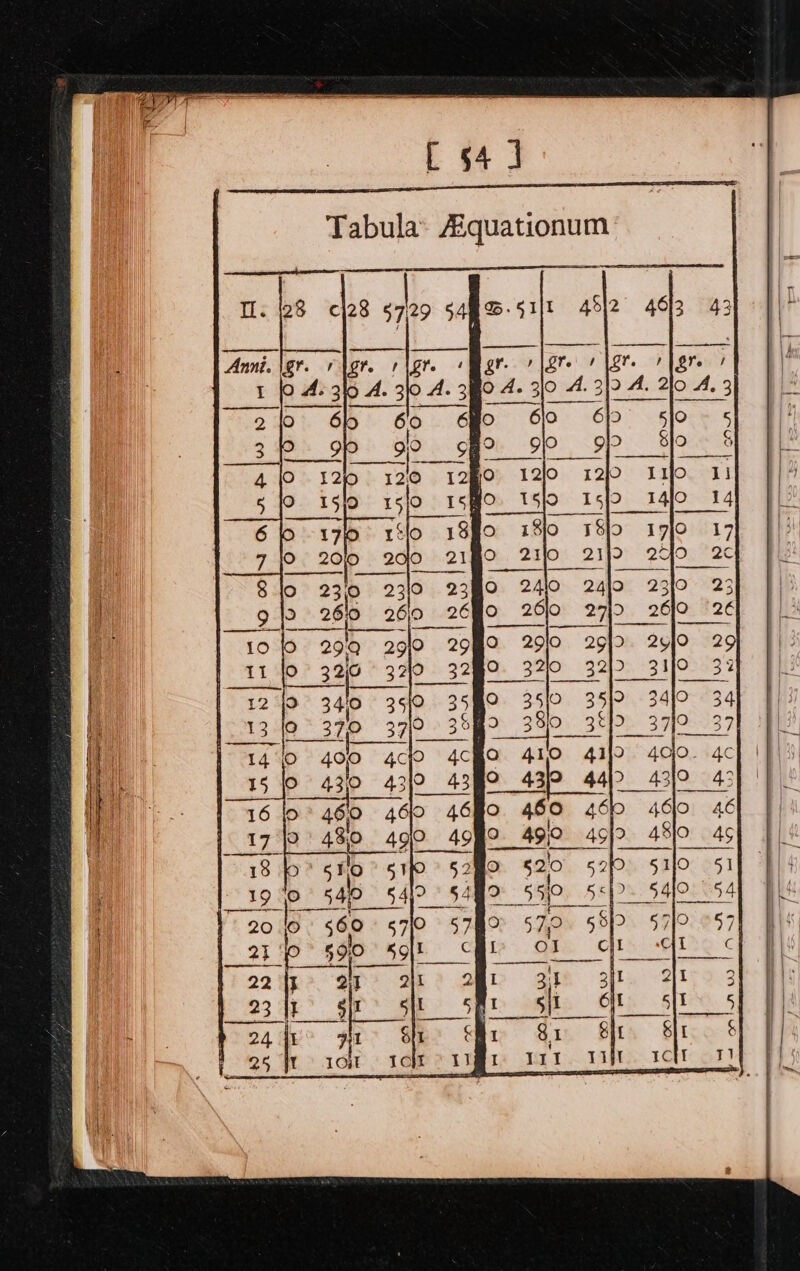 [ 54 ]
Tabula Æquationum
♊: 28 0 28 57 29 54 ♋. 51 1 45 2 46 3 43
Anni. gr. ′ gr. ′ gr. ′ gr. ′ gr. ′ gr. ′ gr. ′
1 0 A. 3 0 A. 3 0 A. 3 0 A. 3 0 A. 3 0 A. 2 0 A. 3
2 0 6 0 6 0 6 0 6 0 6 0 5 0 5
3 0 9 0 9 0 9 0 9 0 9 0 8 0 8
4 0 12 0 12 0 12 0 12 0 12 0 11 0 11
5 0 15 0 15 0 15 0 15 0 15 0 14 0 14
6 0 17 0 18 0 18 0 18 0 18 0 17 0 17
7 0 20 0 20 0 21 0 21 0 21 0 20 0 20
8 0 23 0 23 0 23 0 24 0 24 0 23 0 23
9 0 26 0 26 0 26 0 26 0 27 0 26 0 26
10 0 29 0 29 0 29 0 29 0 29 0 29 0 29
11 0 32 0 32 0 32 0 32 0 32 0 31 0 32
12 0 34 0 35 0 35 0 35 0 35 0 34 0 34
13 0 37 0 37 0 38 0 38 0 38 0 37 0 37
14 0 40 0 40 0 40 0 41 0 41 0 40 0 40
15 0 43 0 43 0 43 0 43 0 44 0 43 0 43
16 0 46 0 46 0 46 0 46 0 46 0 46 0 46
17 0 48 0 49 0 49 0 49 0 49 0 48 0 49
18 0 51 0 51 0 52 0 52 0 52 0 51 0 51
19 0 54 0 54 0 54 0 55 0 55 0 54 0 54
20 0 56 0 57 0 57 0 57 0 58 0 57 0 57
21 0 59 0 59 1 0 1 0 1 0 1 0 1 0
22 1 2 1 2 1 2 1 3 1 3 1 2 1 3
23 1 5 1 5 1 5 1 5 1 6 1 5 1 5
24 1 7 1 8 1 8 1 8 1 8 1 8 1 8
25 1 10 1 10 1 11 1 11 1 11 1 10 1 11